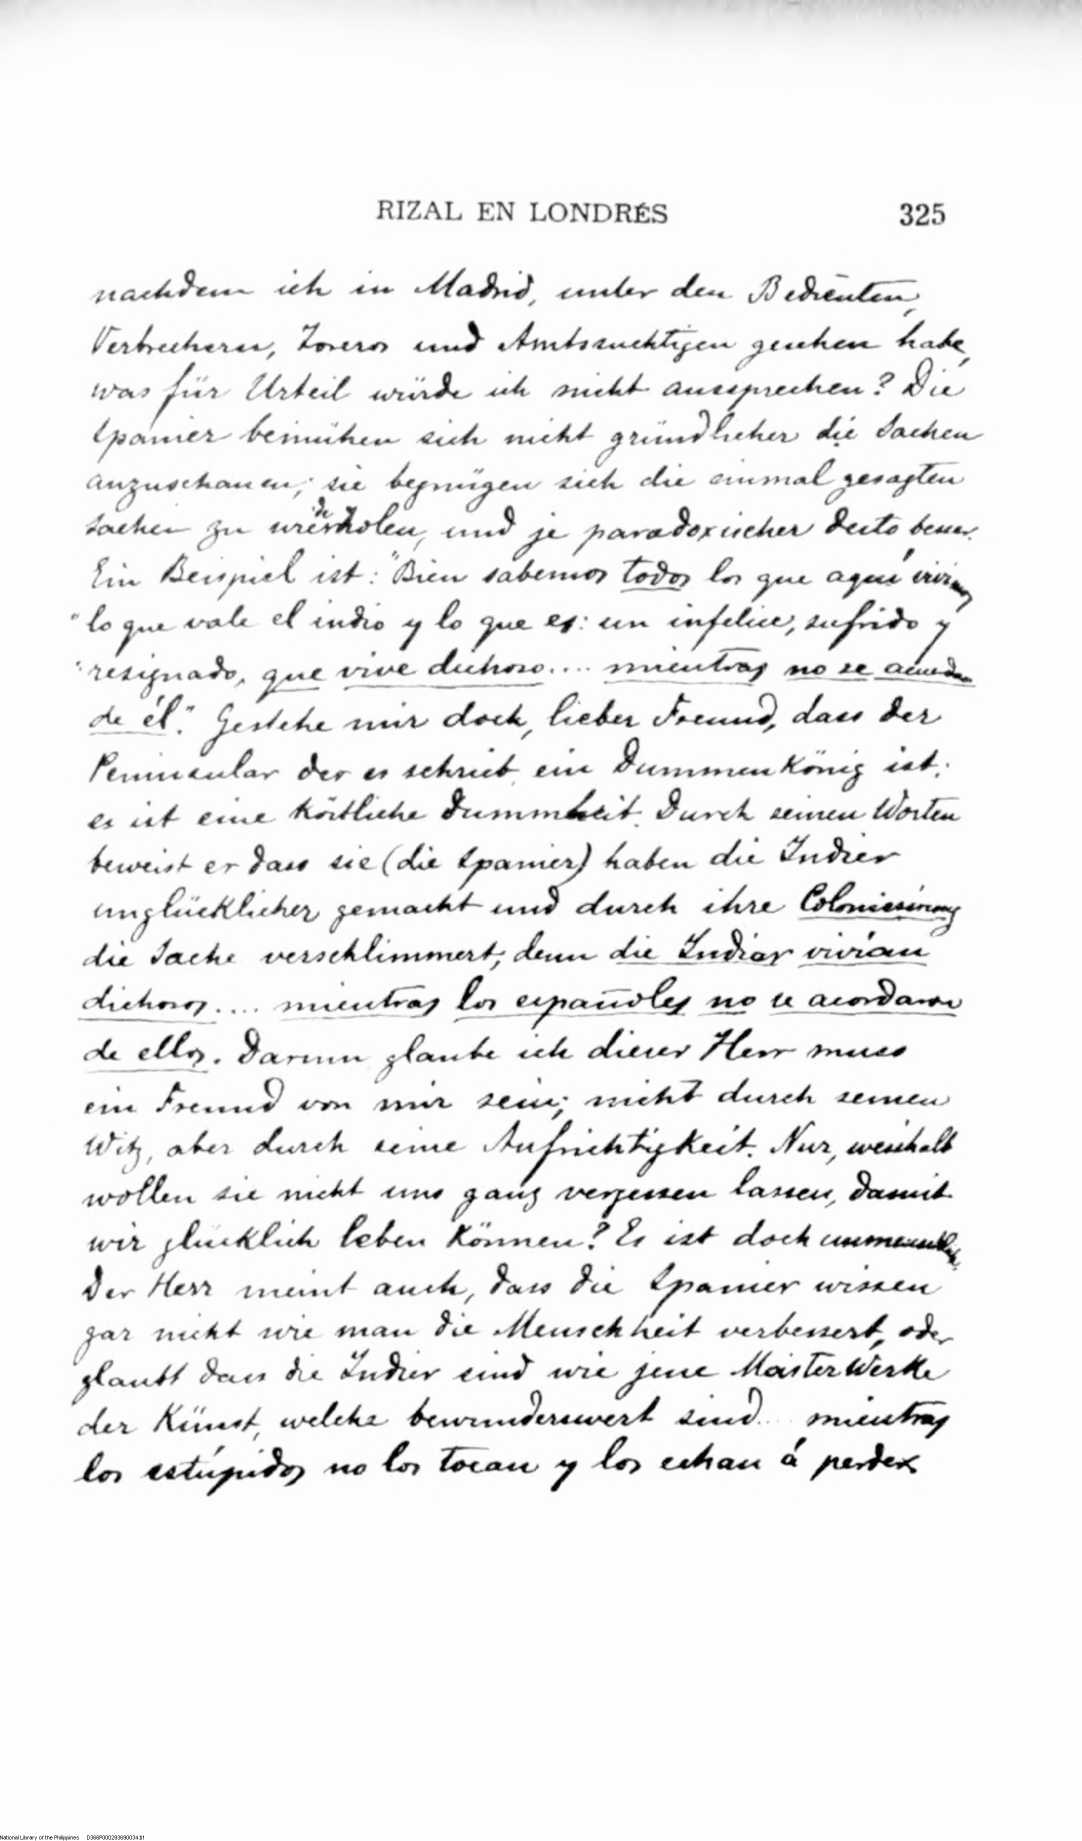 RIZAL EN LONDRÉS 325
nachdem ich in Madrid, unter den Bedienten,
Verbrechern, Toreros und Amtssuchtigen gesehen habe,
was für Urteil würde ich nicht aussprechen? Die
Spanier bemühen sich nicht gründlicher die Sachen
anzuschauen; sie begnügen sich die einmal gesagten
Sachen zu wiederholen, und je paradoxischer desto besser.
Ein Beispiel ist: "Bien sabemos todos los que aquí vivimos
"lo que vale el indio y lo que es: un infelice, sufrido y
"resignado, que vive dichoso.... mientras no se acuerdan
de él". Gestehe mir doch, lieber Freund, dass der
Peninsular der es schrieb ein Dummenkönig ist;
es ist eine köstliche Dummheit. Durch seinen Worten
beweist er dass sie (die Spanier) haben die Indier
unglücklicher gemacht und durch ihre Coloniesirung
die Sache verschlimmert; denn die Indier vivían
dichosos.... mientras los españoles no se acordaron
de ellos. Darum glaube ich dieser Herr muss
ein Freund von mir sein; nicht durch seinen
Witz, aber durch seine Aufrichtigkeit. Nur, weshalb
wollen sie nicht uns ganz vergessen lassen, damit
wir glücklich leben können? Es ist doch
Der Herr meint auch, dass die Spanier wissen
gar nicht wie man die Menschheit verbessert, oder
glaubt dass die Indier sind wie jene MeisterWerke
der Künst, welche bewunderswert sind... mientras
los estúpidos no los tocan y los echan á perder
National Library of the Philippines